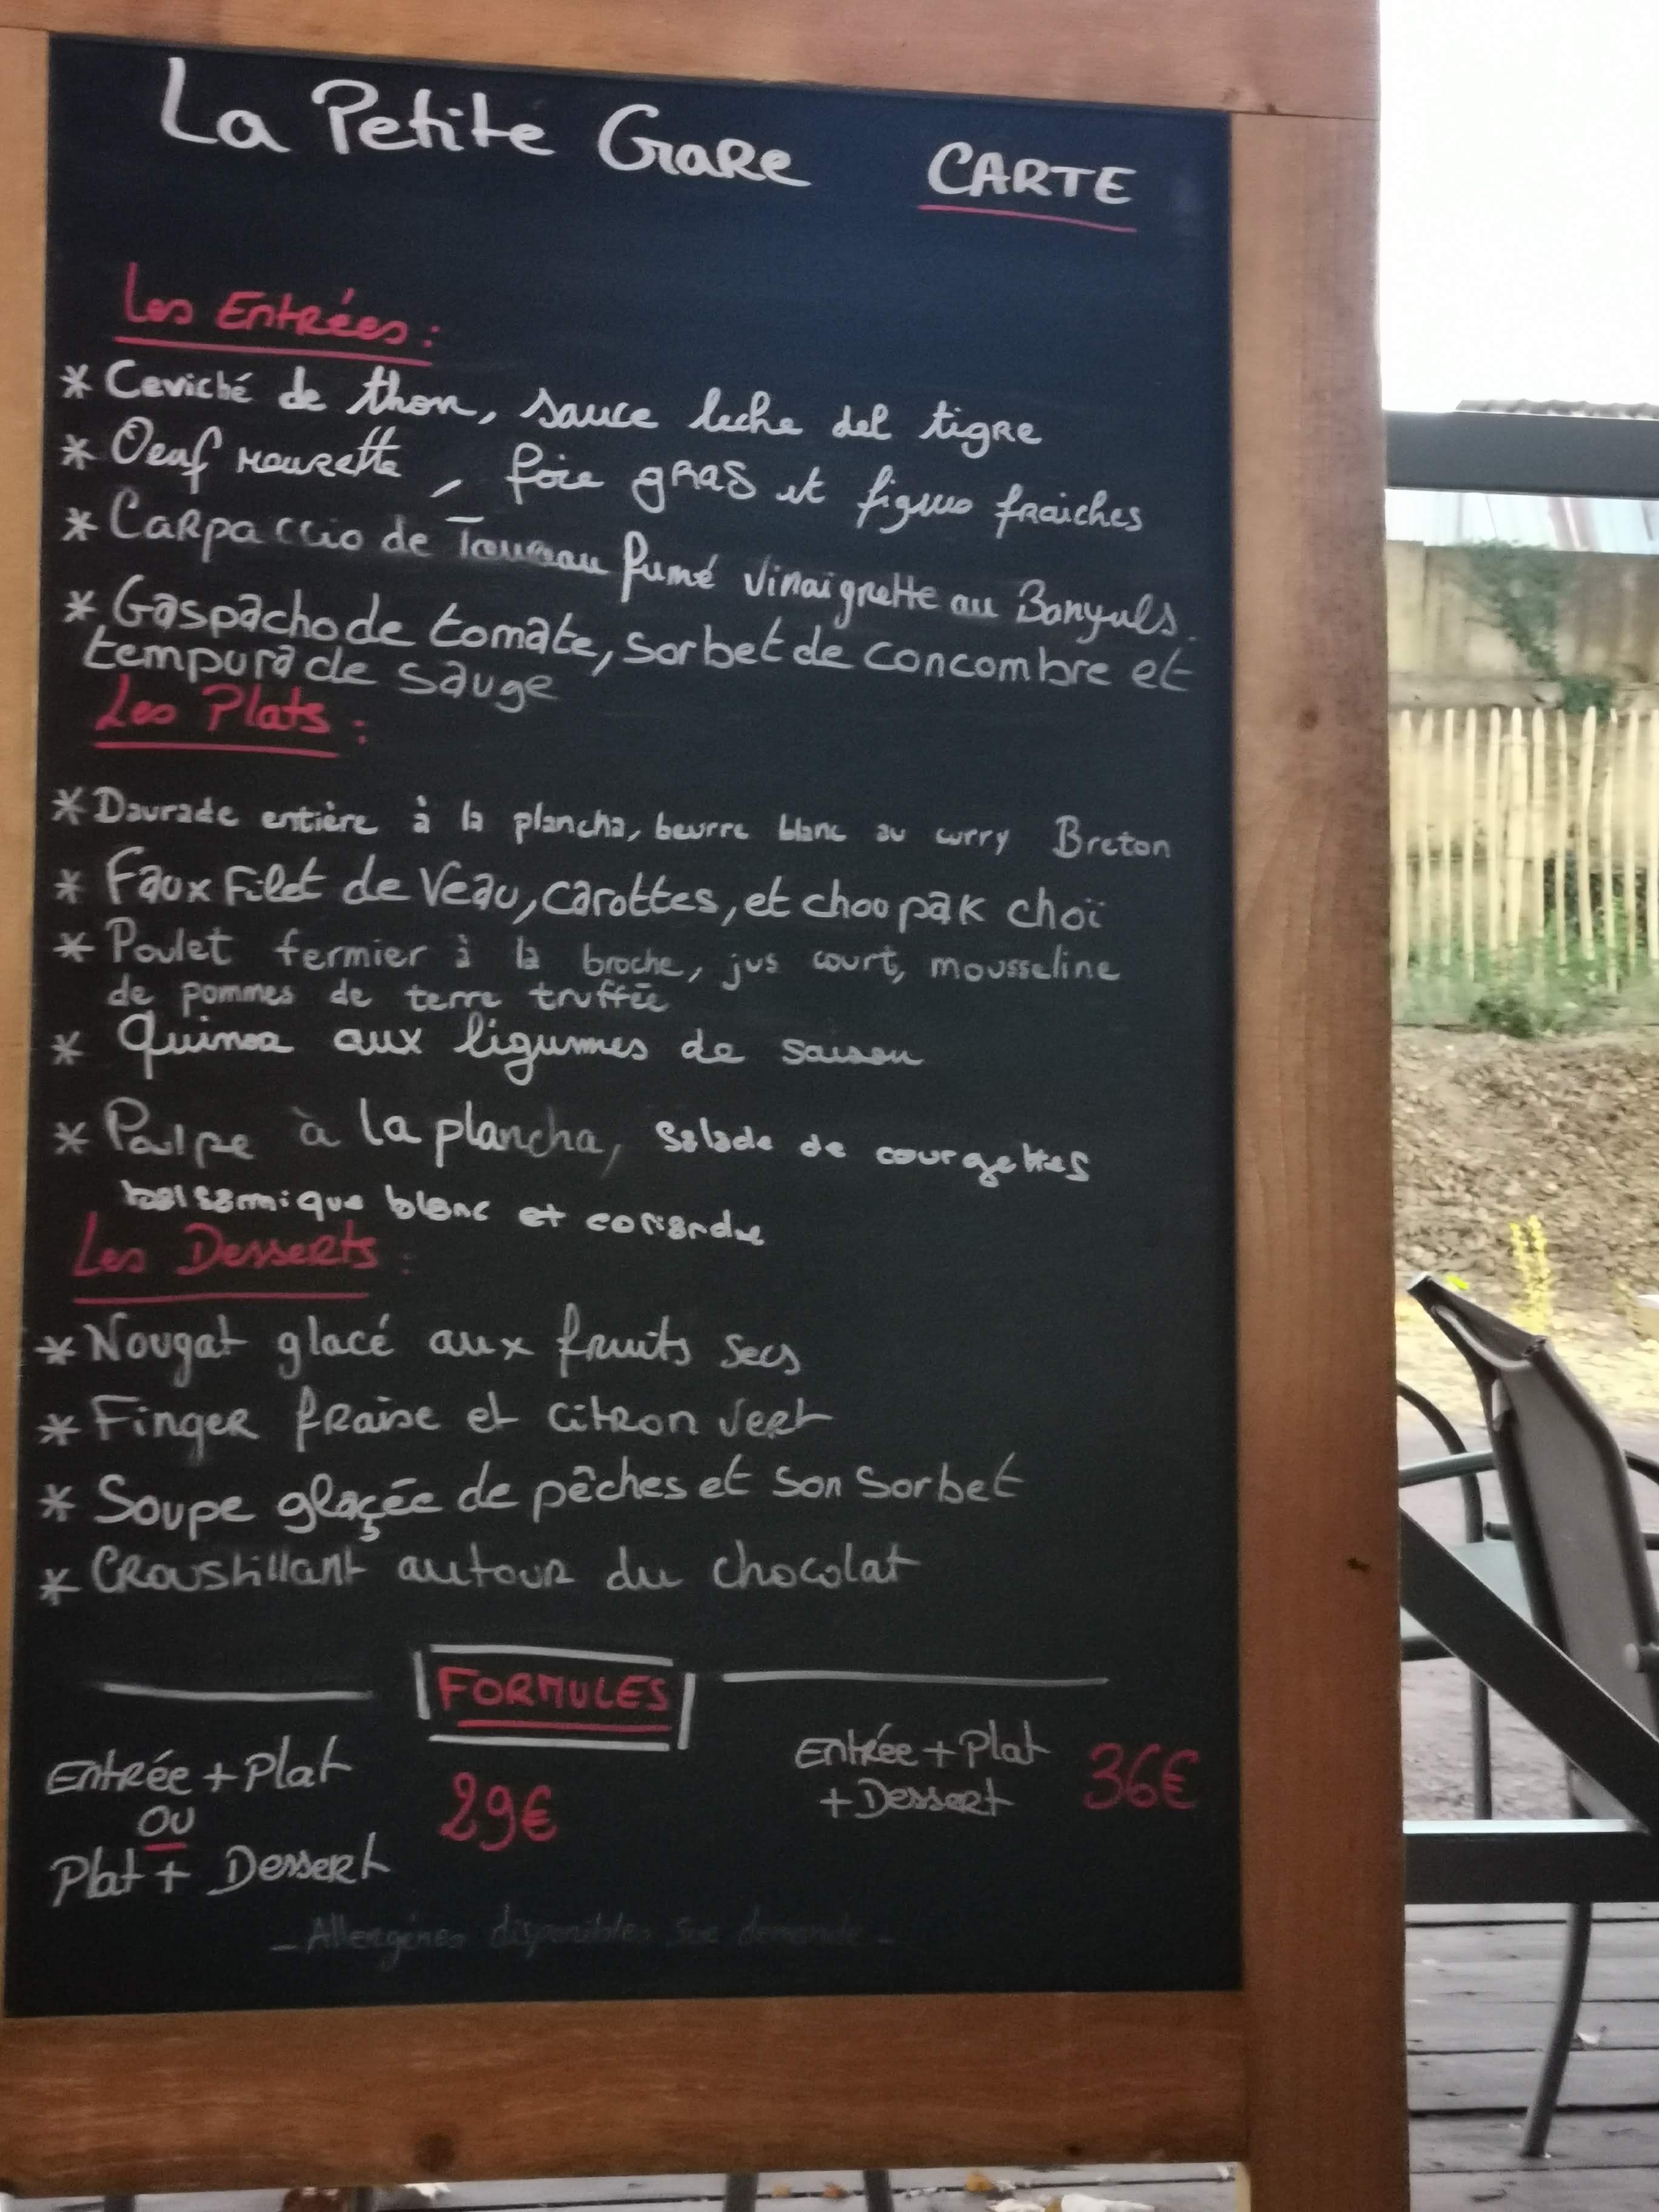 La Petite Gare CARTE
Les Entrées :
* Ceviché de thon, sauce leche del tigre
* Oeuf meurette, foie gras et figues fraiches
* Carpaccio de Taureau fumé vinaigrette au Banyuls.
* Gaspacho de tomate, sorbet de concombre et
tempura de sauge
Les Plats :
* Daurade entière à la plancha, beurre blanc au curry Breton
* Faux Filet de Veau, carottes, et choo pak choï
* Poulet fermier à la broche, jus court, mousseline
de pommes de terre truffée
* Quinoa aux légumes de saison
* Poulpe à la plancha, Salade de courgettes
balsamique blanc et coriandre
Les Desserts :
* Nougat glacé aux fruits secs
* Finger fraise et citron vert
* Soupe glaçée de pêches et son sorbet
* Croustillant autour du chocolat
FORMULES
Entrée + Plat
ou
Plat + Dessert
29€
Entrée + Plat
+ Dessert
36€
- Allergènes disponibles sur demande -